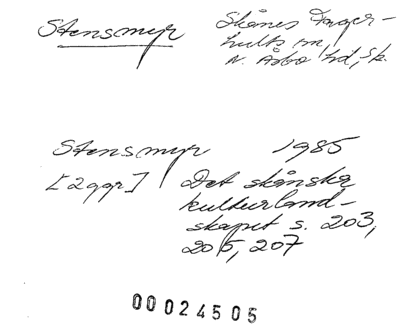 Stensmyr
Skånes Fager-
hults sn,
N. Åsbo hd, Sk.
Stensmyr 1985
[2 ggr] Det skånska
kulturland-
skapet s. 203,
205, 207
00024505